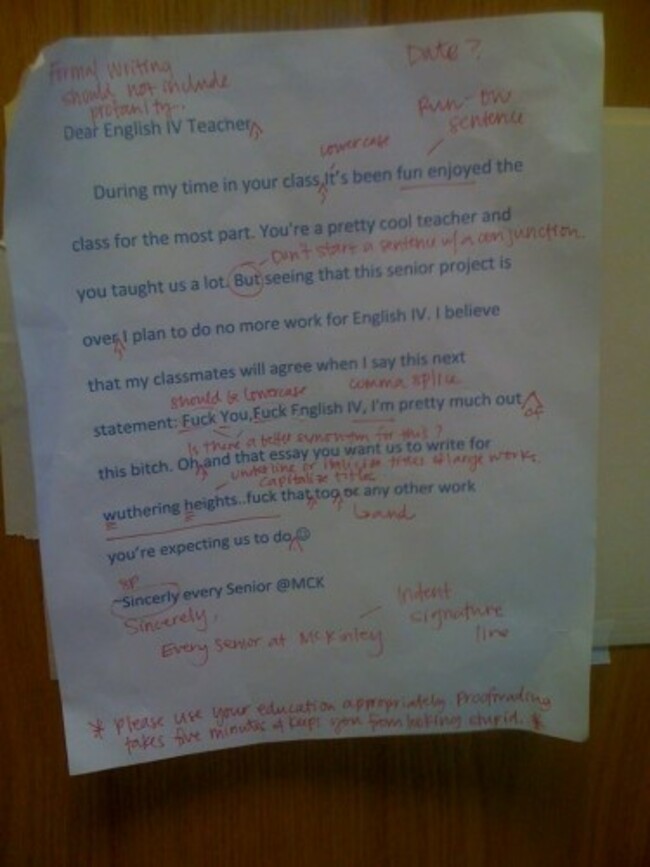 Formal writing
should not include
profanity...
Date?
Dear English IV Teacher
Run-on
sentence
lowercase
During my time in your class It's been fun enjoyed the
class for the most part. You're a pretty cool teacher and
Don't start a sentence w/ a conjunction.
you taught us a lot. But seeing that this senior project is
over I plan to do no more work for English IV. I believe
that my classmates will agree when I say this next
should be lowercase
comma splice
statement: Fuck You,Fuck English IV, I'm pretty much out
of
Is there a better synonym for this?
this bitch. Oh and that essay you want us to write for
underline or italicize titles of large works.
capitalize title
wuthering heights..fuck that too or any other work
and
you're expecting us to do ☺
sp
~Sincerly every Senior @MCK
Sincerely,
Every senior at McKinley
Indent
signature
line
* Please use your education appropriately. Proofreading
takes five minutes & keeps you from looking stupid. *